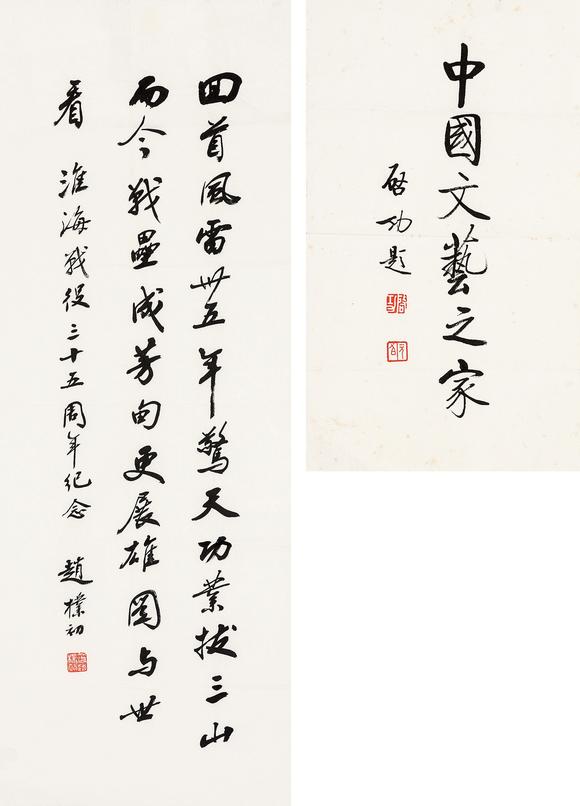 回首風雷卅五年驚天功業拔三山
而今戰壘成芳甸更展雄圖与世
看 淮海戰役三十五周年紀念 趙樸初
中國文藝之家
啓功題